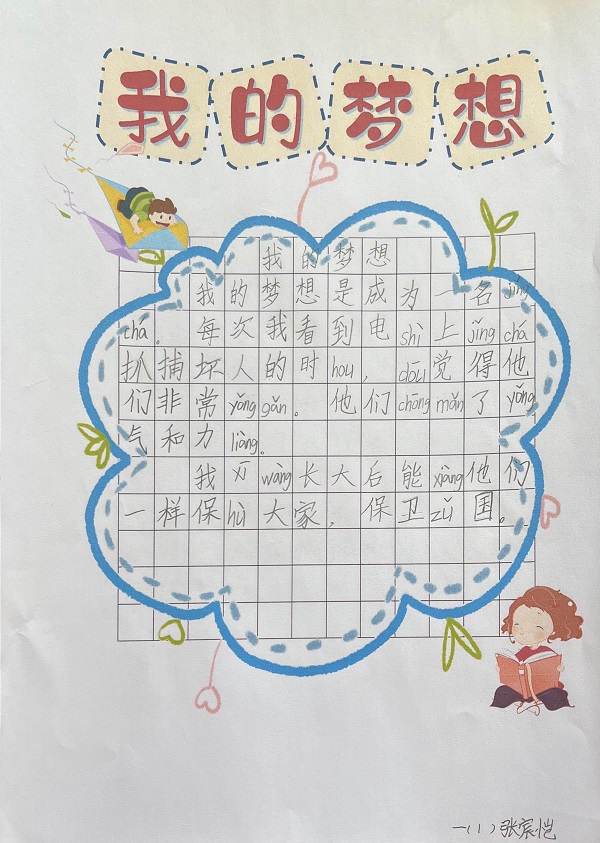 我的梦想
我的梦想
我的梦想是成为一名jǐng
chá。每次我看到电shì上jǐng chá
抓捕坏人的时hou，dōu觉得他
们非常yǒng gǎn。他们chōng mǎn了yǒng
气和力liàng。
我wàng长大后能xiàng他们
一样保hù大家，保卫zǔ国。
一(1)张宸恺